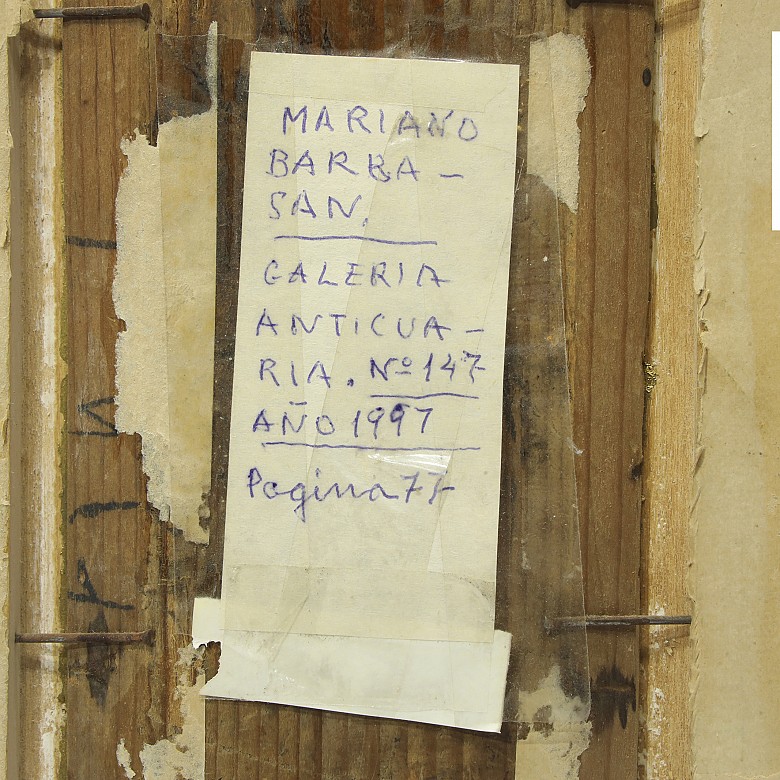 MARIANO
BARBA-
SAN.
GALERIA
ANTICUA-
RIA. Nº 147
AÑO 1997
Pagina